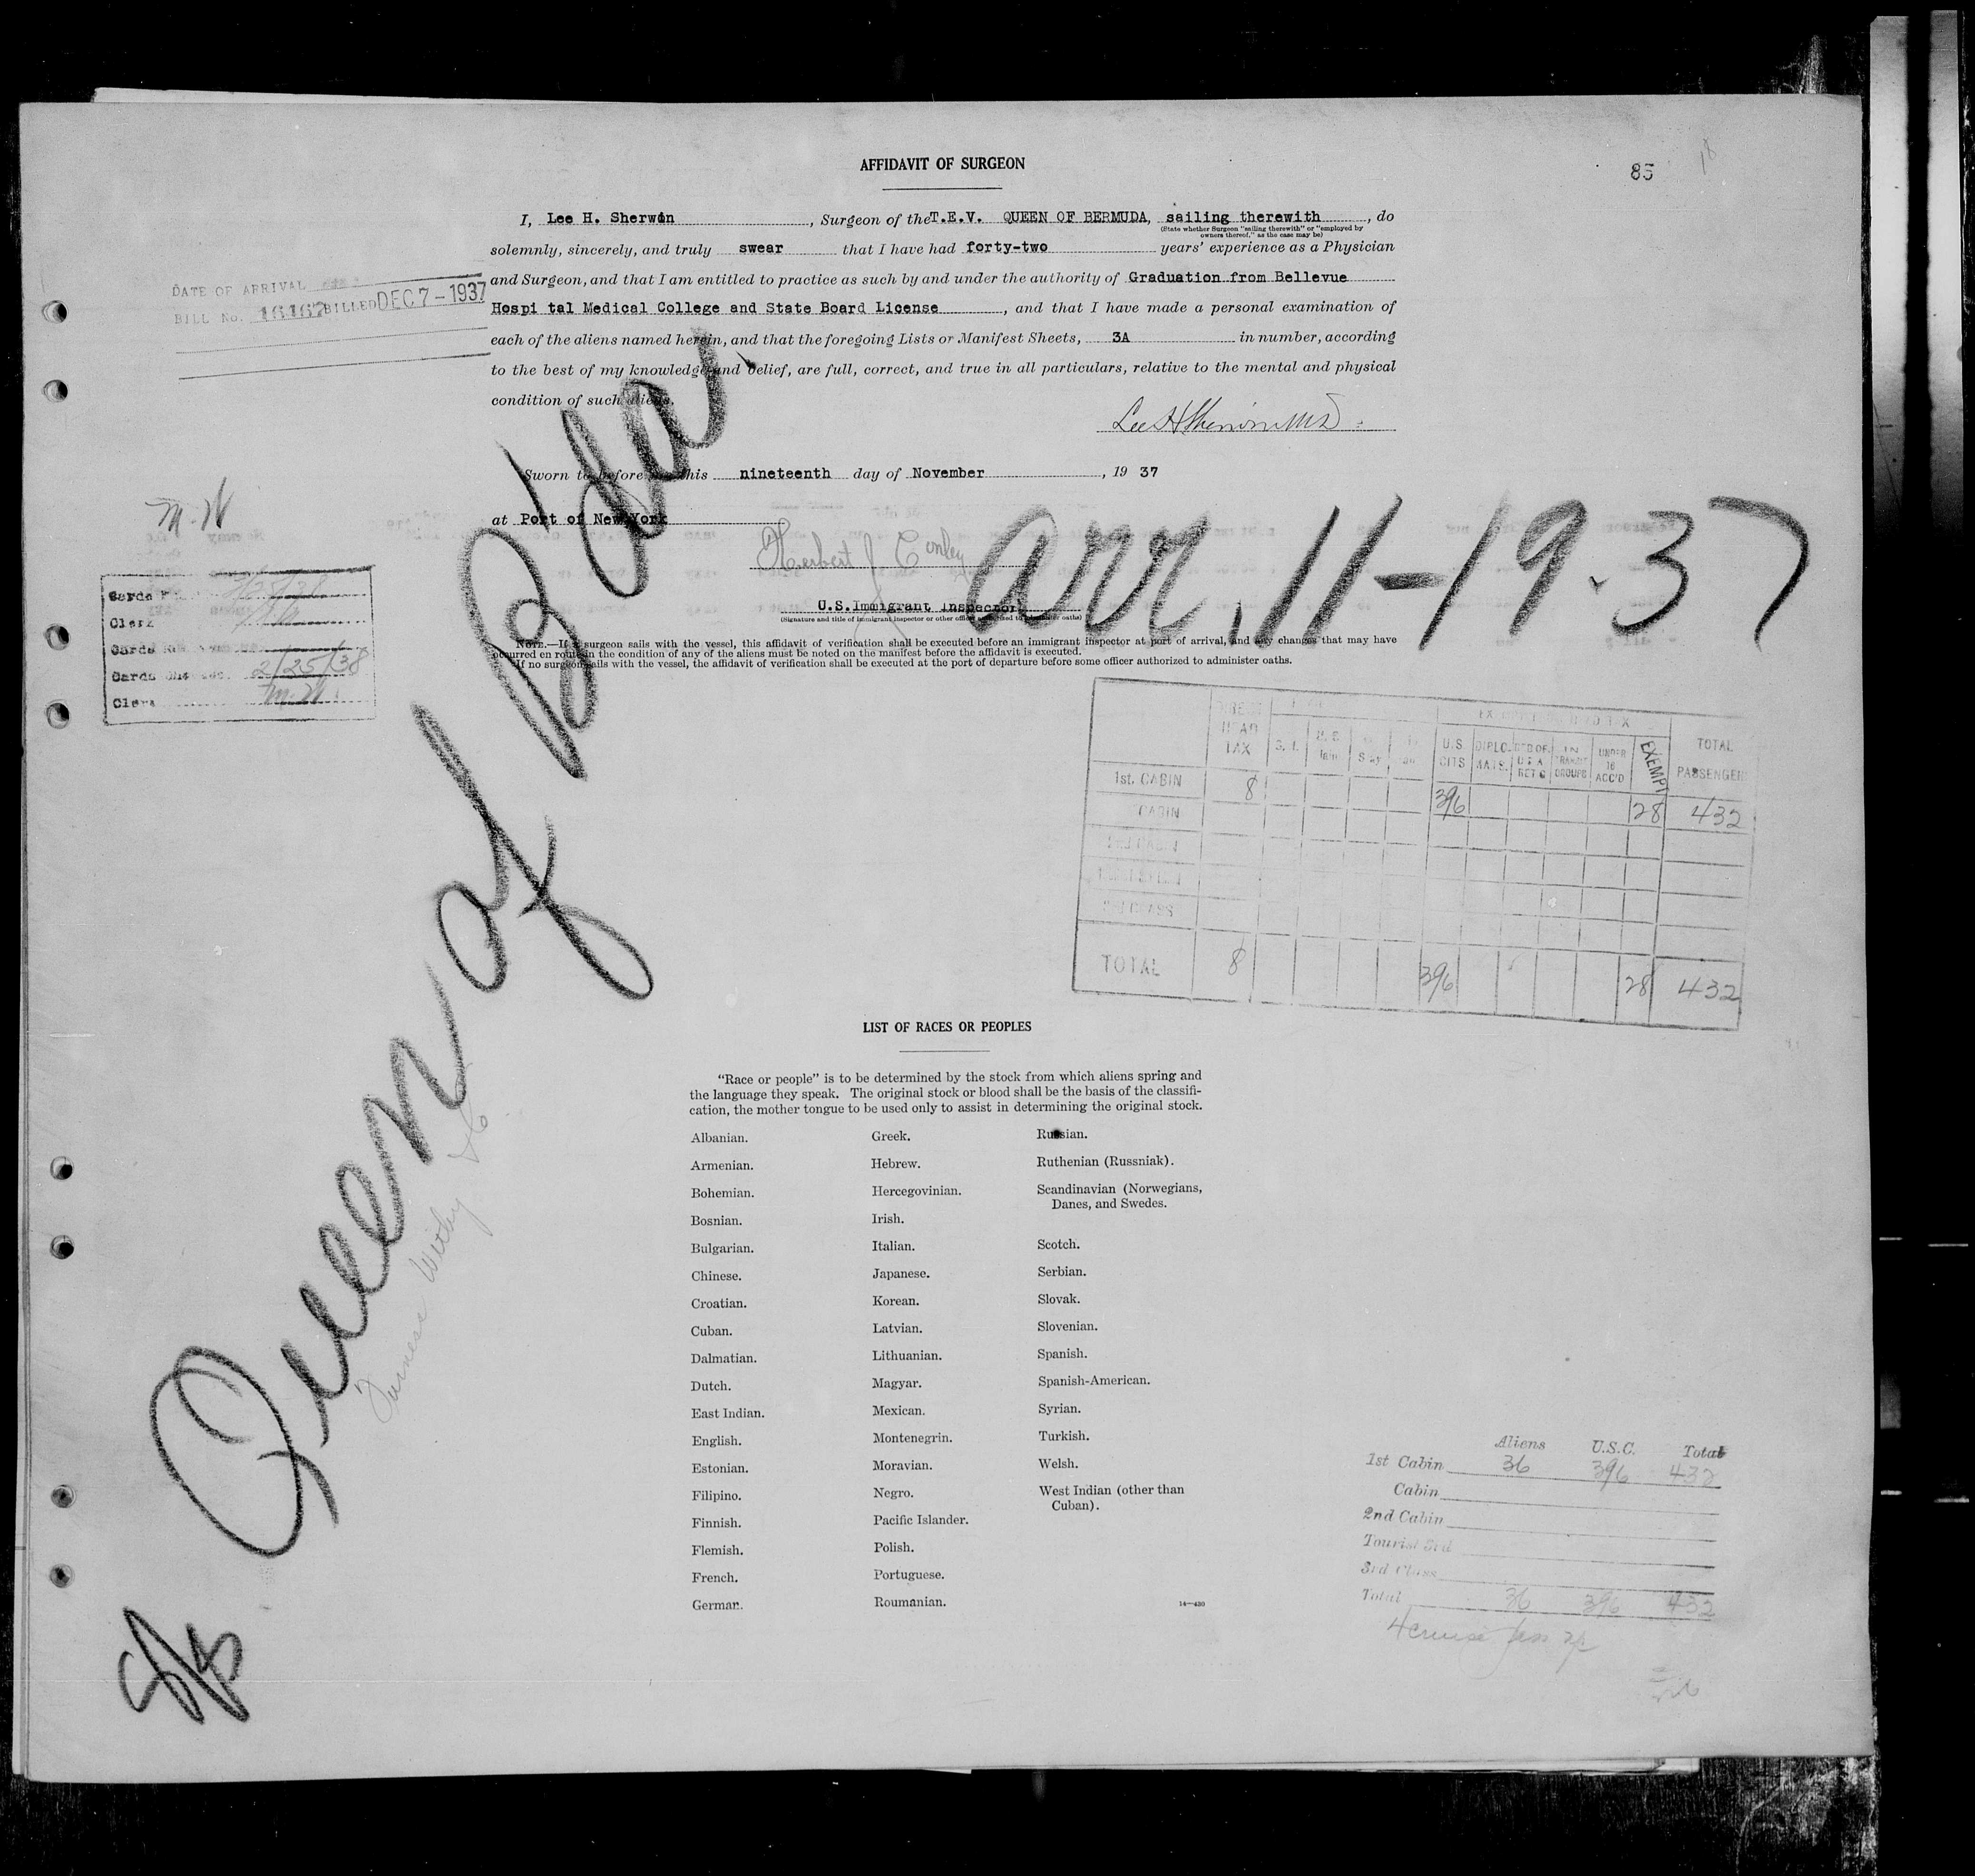 AFFIDAVIT OF SURGEON
85
18
I, Lee H. Sherwin, Surgeon of the T.E.V. QUEEN OF BERMUDA, sailing therewith, do
(State whether Surgeon "sailing therewith" or "employed by
owners thereof," as the case may be)
solemnly, sincerely, and truly swear that I have had forty-two years' experience as a Physician
and Surgeon, and that I am entitled to practice as such by and under the authority of Graduation from Bellevue
Hospi tal Medical College and State Board License, and that I have made a personal examination of
each of the aliens named herein, and that the foregoing Lists or Manifest Sheets, 3A in number, according
to the best of my knowledge and belief, are full, correct, and true in all particulars, relative to the mental and physical
condition of such aliens.
Lee H Sherwin MD
Sworn to before me this nineteenth day of November, 19 37
at Port of New York
Herbert J. Conley
U.S.Immigrant Inspector
(Signature and title of immigrant inspector or other officer authorized to administer oaths)
NOTE.—If a surgeon sails with the vessel, this affidavit of verification shall be executed before an immigrant inspector at port of arrival, and any changes that may have
occurred en route in the condition of any of the aliens must be noted on the manifest before the affidavit is executed.
If no surgeon sails with the vessel, the affidavit of verification shall be executed at the port of departure before some officer authorized to administer oaths.
DATE OF ARRIVAL
BILL No. 16167 BILLED DEC 7-1937
M.W
Cards
Clerk
Cards
Cards 2/25/38
Clerk M.W.
Queen of B'da
arr. 11-19-37
Furness Withy & Co
HEAD TAX U.S. CITS DIPLOMATS IN TRANSIT GROUPS UNDER 16 ACC'D EXEMPT TOTAL PASSENGER
1st. CABIN 8 396 28 432
CABIN
2nd CABIN
3rd CLASS
TOTAL 8 396 28 432
LIST OF RACES OR PEOPLES
"Race or people" is to be determined by the stock from which aliens spring and
the language they speak. The original stock or blood shall be the basis of the classifi-
cation, the mother tongue to be used only to assist in determining the original stock.
Albanian.
Armenian.
Bohemian.
Bosnian.
Bulgarian.
Chinese.
Croatian.
Cuban.
Dalmatian.
Dutch.
East Indian.
English.
Estonian.
Filipino.
Finnish.
Flemish.
French.
German.
Greek.
Hebrew.
Hercegovinian.
Irish.
Italian.
Japanese.
Korean.
Latvian.
Lithuanian.
Magyar.
Mexican.
Montenegrin.
Moravian.
Negro.
Pacific Islander.
Polish.
Portuguese.
Roumanian.
Russian.
Ruthenian (Russniak).
Scandinavian (Norwegians,
Danes, and Swedes.
Scotch.
Serbian.
Slovak.
Slovenian.
Spanish.
Spanish-American.
Syrian.
Turkish.
Welsh.
West Indian (other than
Cuban).
14—430
Aliens U.S.C. Total
1st Cabin 36 396 432
Cabin
2nd Cabin
Tourist 3rd
3rd Class
Total 36 396 432
4 cruise